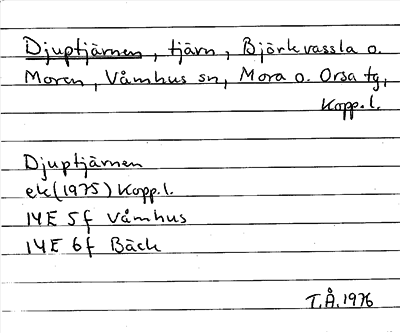 Djuptjärnen, tjärn, Björkvassla o.
Moren, Våmhus sn, Mora o. Orsa tg,
Kopp.l.
Djuptjärnen
ek(1975) Kopp.l.
14E 5f Våmhus
14E 6f Bäck
T.Å.1976